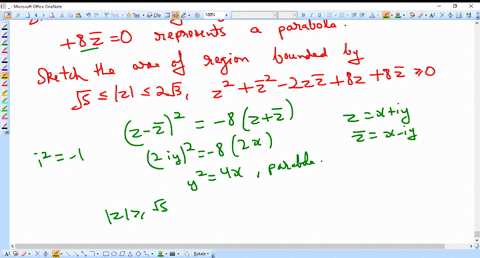 +8z̄=0 represents a parabola.
Sketch the area of region bounded by
√5 ≤ |z| ≤ 2√3, z² + z̄² - 2zz̄ + 8z + 8z̄ ≥ 0
(z-z̄)² = -8(z+z̄)
z = x+iy
z̄ = x-iy
i² = -1
(2iy)² = -8(2x)
y² = 4x, parabola.
|z| ≥ √5